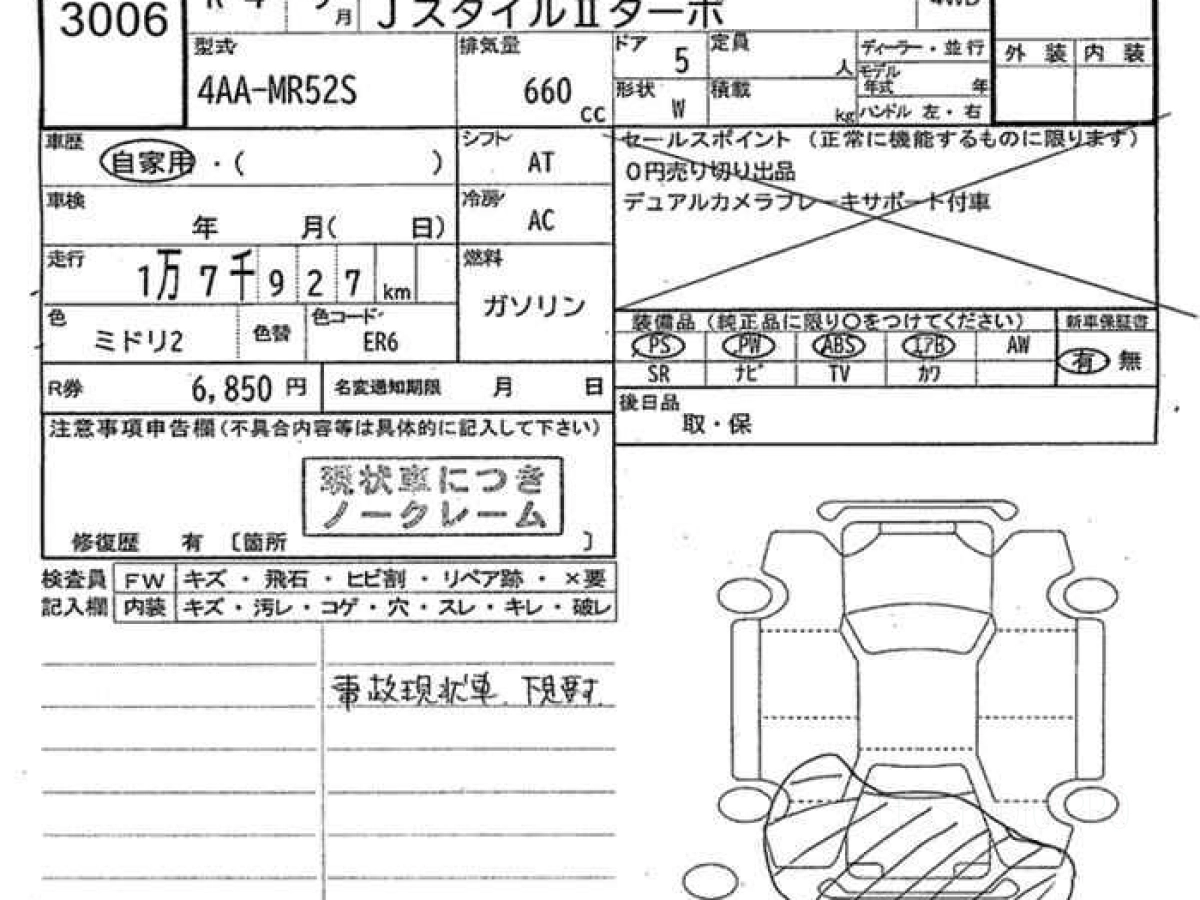 3006
R 4 月 JスタイルⅡターボ 4WD
型式
4AA-MR52S
排気量
660
cc
ドア
5
定員
人
ディーラー・並行
モデル年式 年
形状
W
積載
kg
ハンドル 左・右
外装 内装
車歴
自家用・( )
シフト
AT
車検
年 月( 日)
冷房
AC
走行
1万7千927km
燃料
ガソリン
色
ミドリ2
色替
色コード
ER6
R券
6,850 円
名変通知期限 月 日
セールスポイント (正常に機能するものに限ります)
0円売り切り出品
デュアルカメラブレーキサポート付車
装備品 (純正品に限り○をつけてください)
新車保証書
PS PW ABS エアB AW
SR ナビ TV カワ
有 無
後日品
取・保
注意事項申告欄(不具合内容等は具体的に記入して下さい)
現状車につき
ノークレーム
修復歴 有 〔箇所 〕
検査員 FW キズ・飛石・ヒビ割・リペア跡・×要
記入欄 内装 キズ・汚レ・コゲ・穴・スレ・キレ・破レ
事故現状車、下見要す.